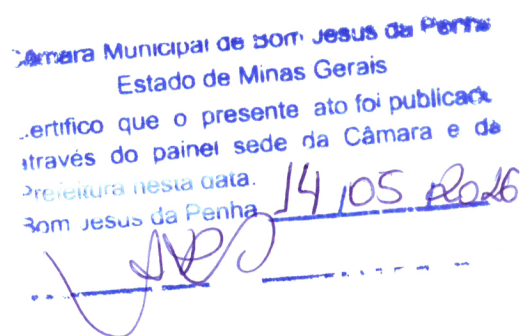 Câmara Municipal de Bom Jesus da Penha
Estado de Minas Gerais
Certifico que o presente ato foi publicado
através do painel sede da Câmara e da
Prefeitura nesta data.
Bom Jesus da Penha 14/05/2026